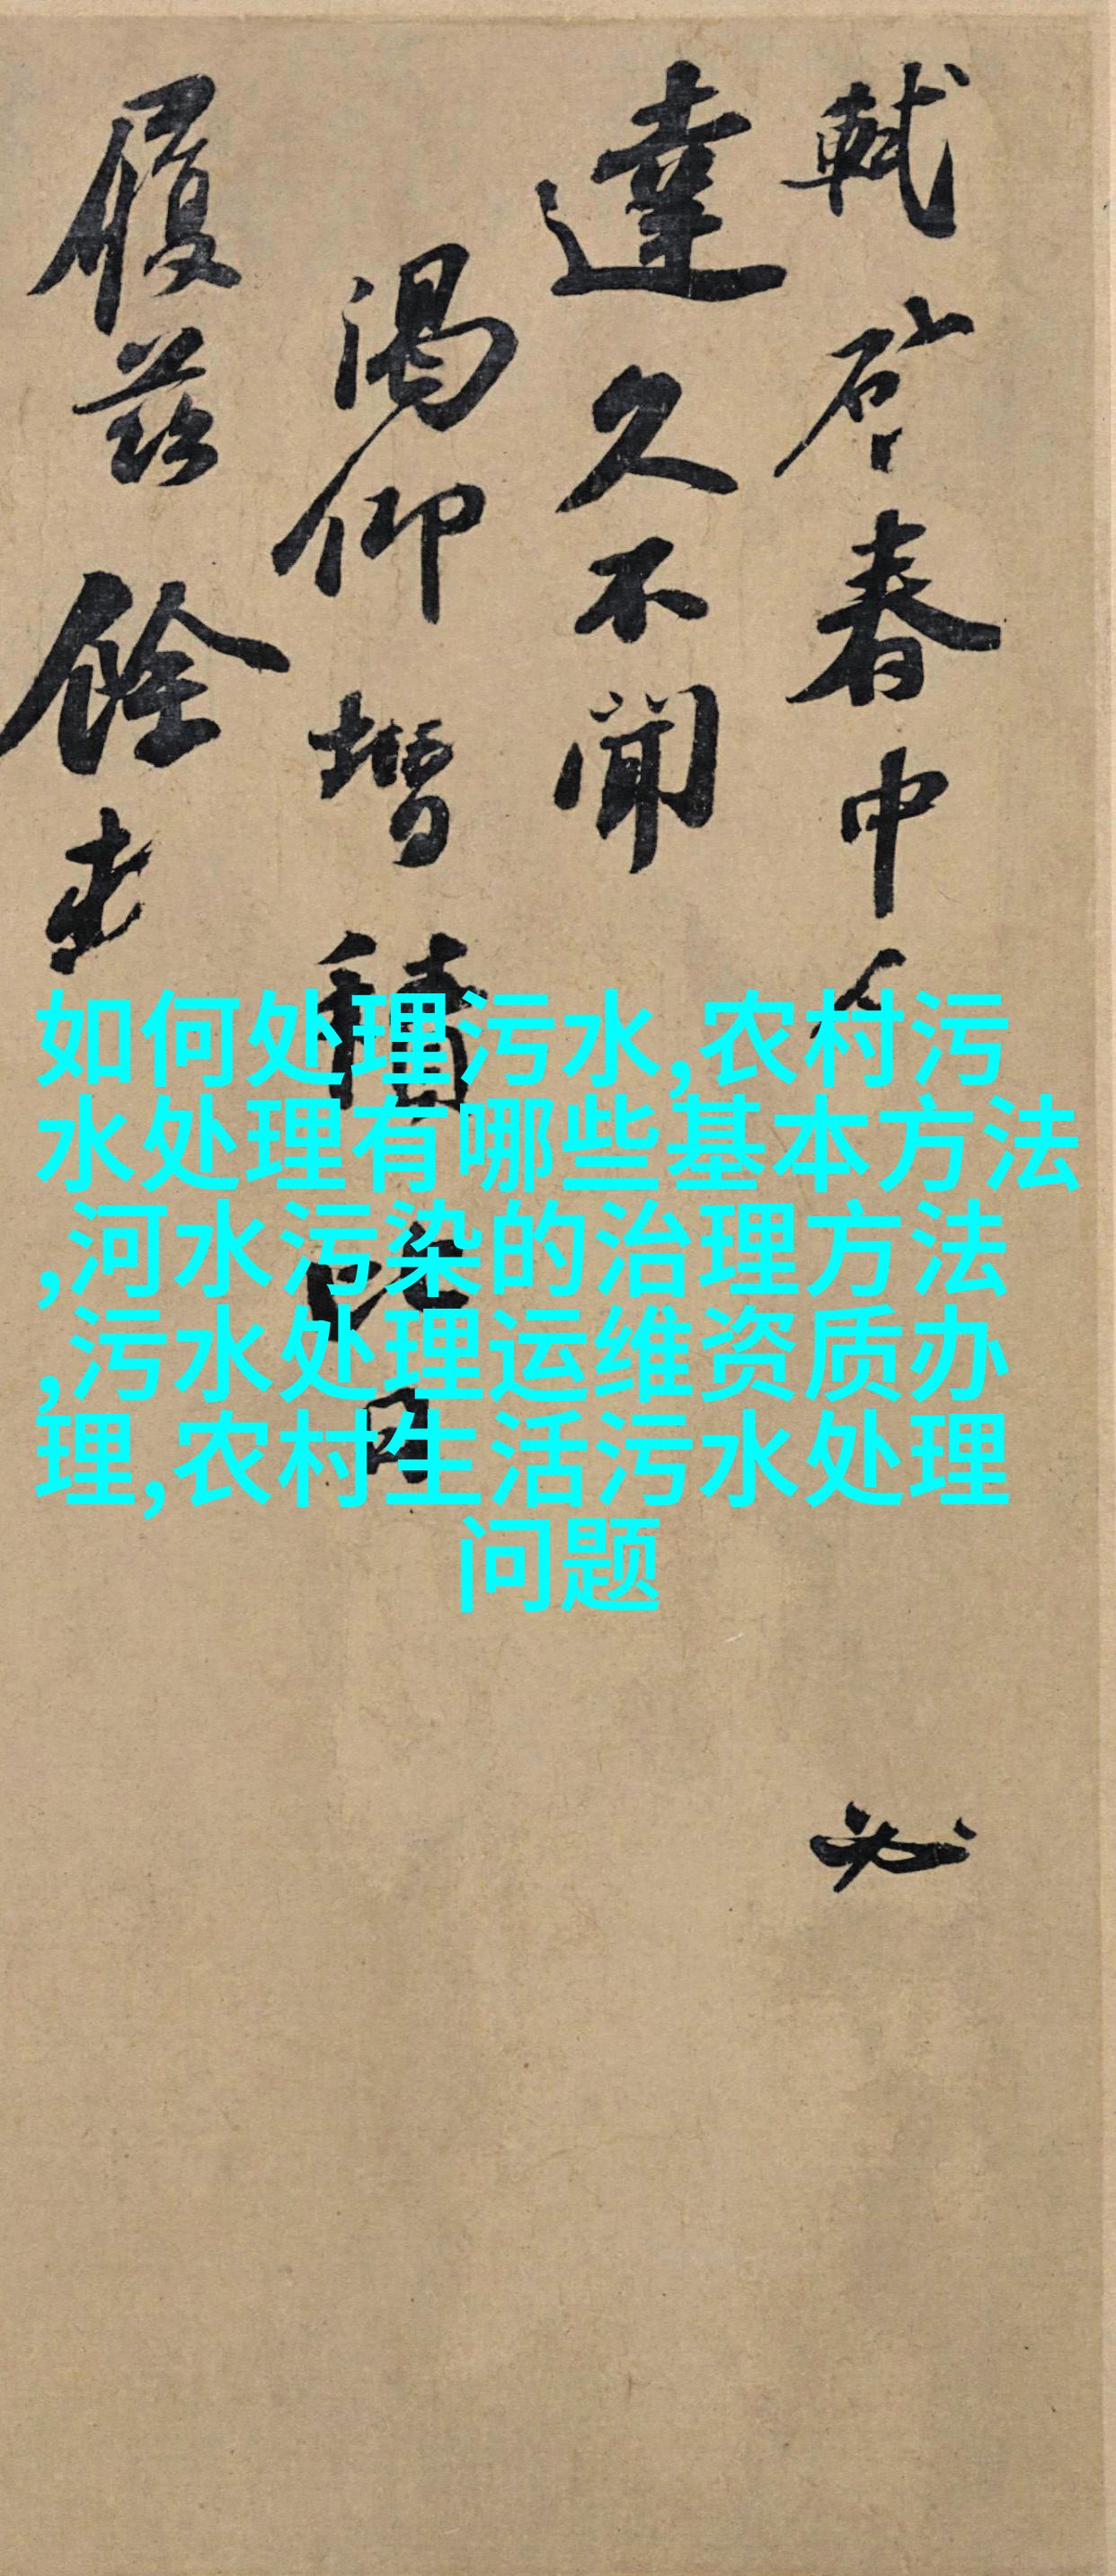 軾啓春中 必
達久不聞
渴仰增積比日
履茲餘
如何处理污水,农村污
水处理有哪些基本方法
,河水污染的治理方法
,污水处理运维资质办
理,农村生活污水处理
问题